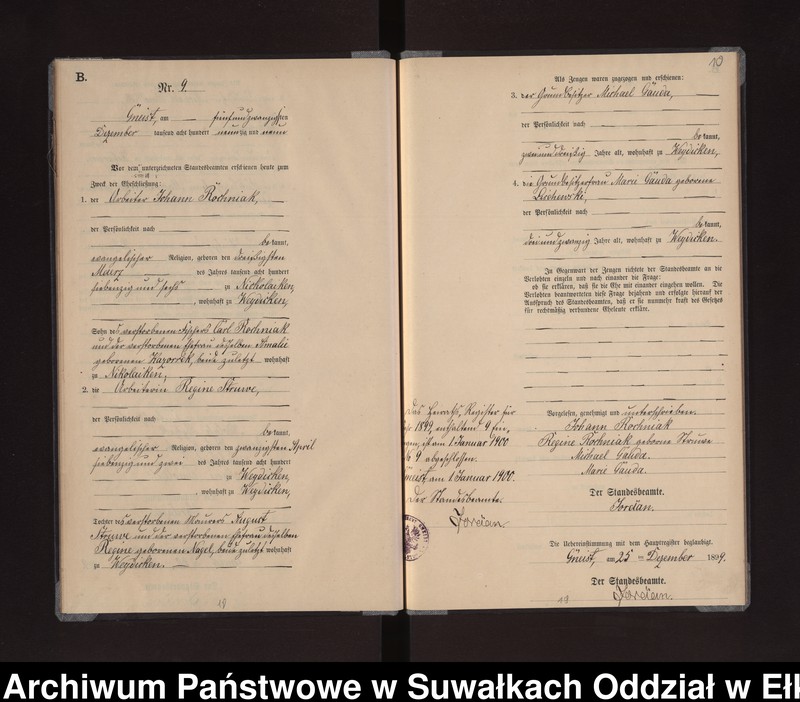 B.
Nr. 9.
Gneist, am fünfundzwanzigsten
Dezember tausend acht hundert neunzig und neun
Vor dem unterzeichneten Standesbeamten erschienen heute zum
Zweck der Eheschließung:
1. der Arbeiter Johann Rochniak,
der Persönlichkeit nach
be kannt,
evangelischer Religion, geboren den dreißigsten
Maerz des Jahres tausend acht hundert
siebenzig und sechs zu Nickolaiken
, wohnhaft zu Weydicken,
Sohn des verstorbenen Carl Rochniak
und der verstorbenen Ehefrau desselben Amalie
geborenen Kayorrek, beide zuletzt wohnhaft
zu Nikolaiken,
2. die Arbeiterin Regine Struwe,
der Persönlichkeit nach
be kannt,
evangelischer Religion, geboren den zwanzigsten April
siebenzig und zwei des Jahres tausend acht hundert
zu Weydicken,
, wohnhaft zu Weydicken,
Tochter des verstorbenen Maurers August
Struwe und der verstorbenen Ehefrau desselben
Regine geborenen Nagel, beide zuletzt wohnhaft
zu Weydicken.
10
Als Zeugen waren zugezogen und erschienen:
3. der Grundbesitzer Michael Gauda,
der Persönlichkeit nach
be kannt,
zweiunddreißig Jahre alt, wohnhaft zu Weydicken,
4. die Grundbesitzerfrau Marie Gauda geborene
der Persönlichkeit nach
be kannt,
dreiundzwanzig Jahre alt, wohnhaft zu Weydicken.
In Gegenwart der Zeugen richtete der Standesbeamte an die
Verlobten einzeln und nach einander die Frage:
ob sie erklären, daß sie die Ehe mit einander eingehen wollen. Die
Verlobten beantworteten diese Frage bejahend und erfolgte hierauf der
Ausspruch des Standesbeamten, daß er sie nunmehr kraft des Gesetzes
für rechtmäßig verbundene Eheleute erkläre.
Das Heiraths-Register für
1899, enthaltend 9 Ein-
gen, ist am 1 Januar 1900
No 9 abgeschlossen.
Gneist am 1 Januar 1900.
Der Standesbeamte.
Jordan.
Vorgelesen, genehmigt und unterschrieben.
Johann Rochniak
Regine Rochniak geborne Struwe
Michael Gauda.
Marie Gauda.
Der Standesbeamte.
Jordan.
Die Uebereinstimmung mit dem Hauptregister beglaubigt.
Gneist, am 25 ten Dezember 1899.
Der Standesbeamte.
Jordan.
Archiwum Państwowe w Suwałkach Oddział w Ełk